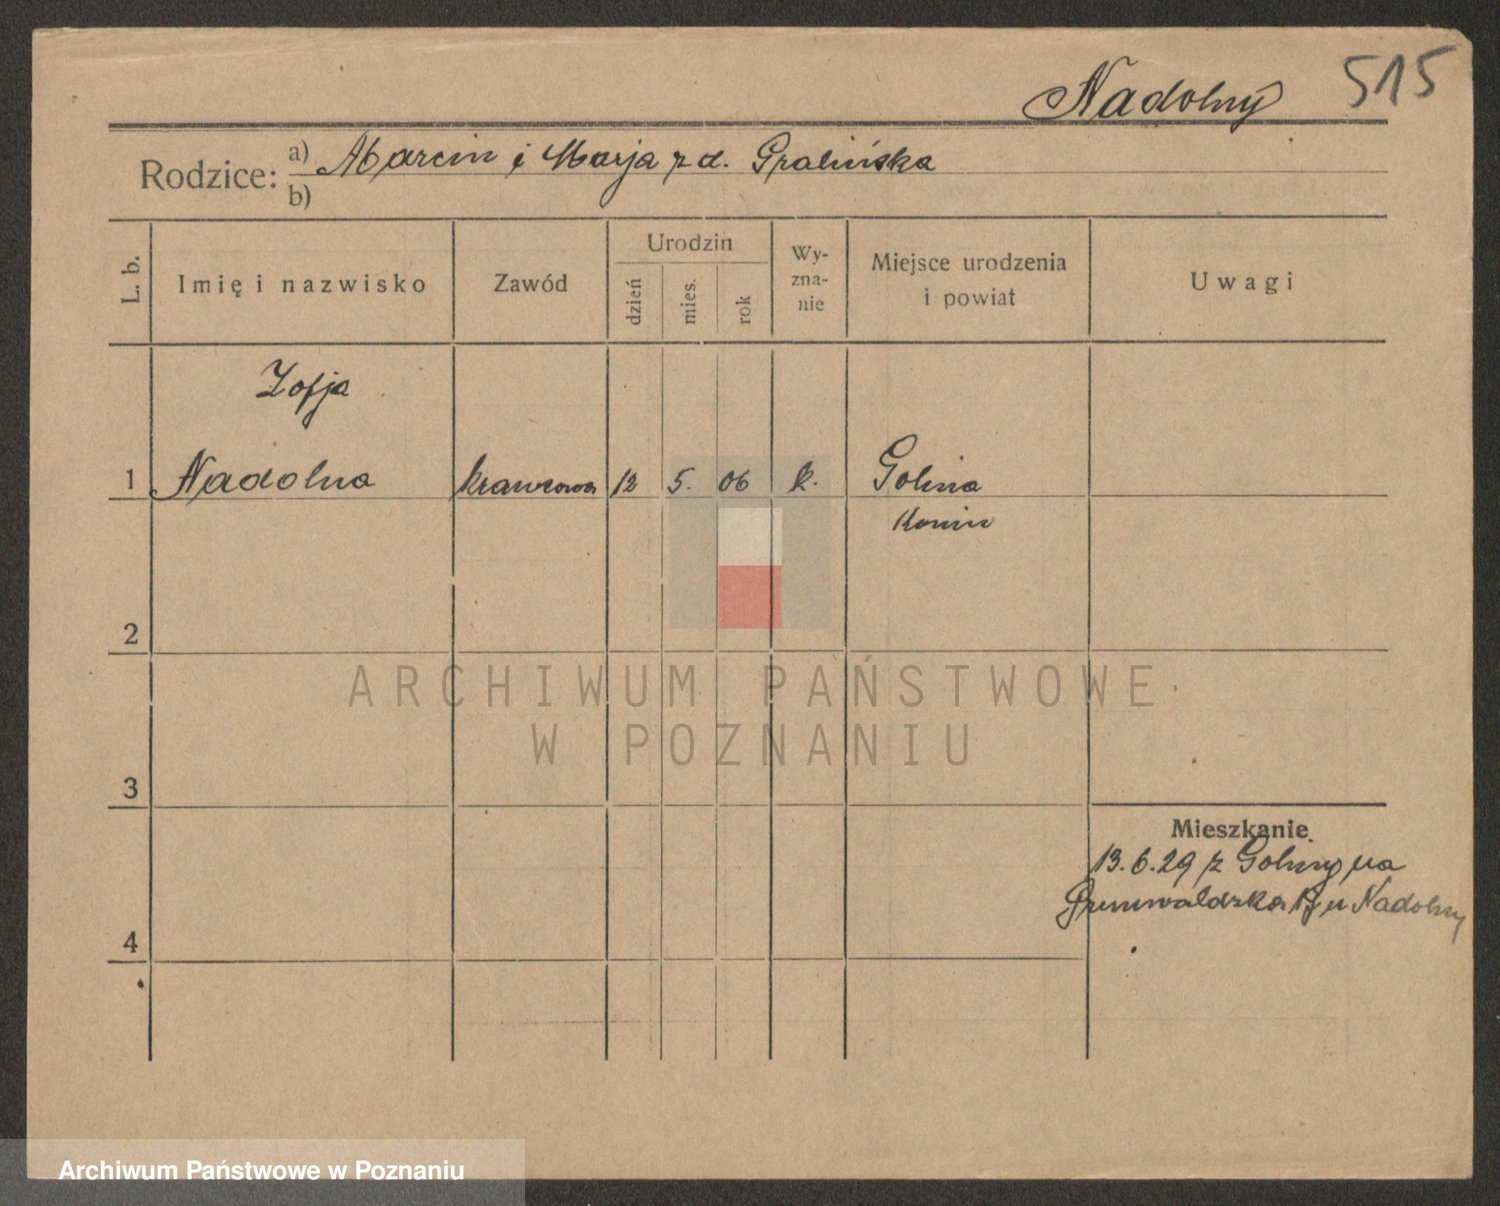 515
Nadolny
Rodzice: a) Marcin i Marja z d. Gralińska
b)
L. b.
Imię i nazwisko
Zawód
Urodzin
dzień
mies.
rok
Wy-
zna-
nie
Miejsce urodzenia
i powiat
Uwagi
Zofja
1 Nadolna krawcowa 12 5. 06 k. Golina
Konin
2
ARCHIWUM PAŃSTWOWE
W POZNANIU
3
Mieszkanie
13.6.29 z Goliny na
Grunwaldzka u Nadolny
4
Archiwum Państwowe w Poznaniu